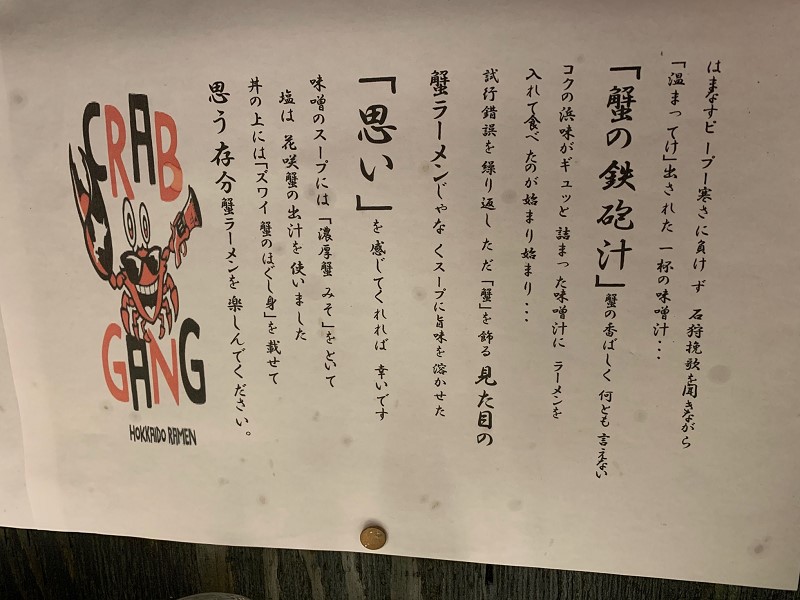 はまなすピープー寒さに負けず 石狩挽歌を聞きながら
「温まってけ」出された 一杯の味噌汁・・・
「蟹の鉄砲汁」蟹の香ばしく 何とも言えない
コクの浜味がギュッと詰まった味噌汁に ラーメンを
入れて食べたのが始まり始まり・・・
試行錯誤を繰り返し ただ「蟹」を飾る 見た目の
蟹ラーメンじゃなくスープに旨味を溶かせた
「思い」を感じてくれれば 幸いです
味噌のスープには「濃厚蟹みそ」をといて
塩は 花咲蟹の出汁を使いました
丼の上には「ズワイ蟹のほぐし身」を載せて
思う存分蟹ラーメンを 楽しんでください。
CRAB
GANG
HOKKAIDO RAMEN